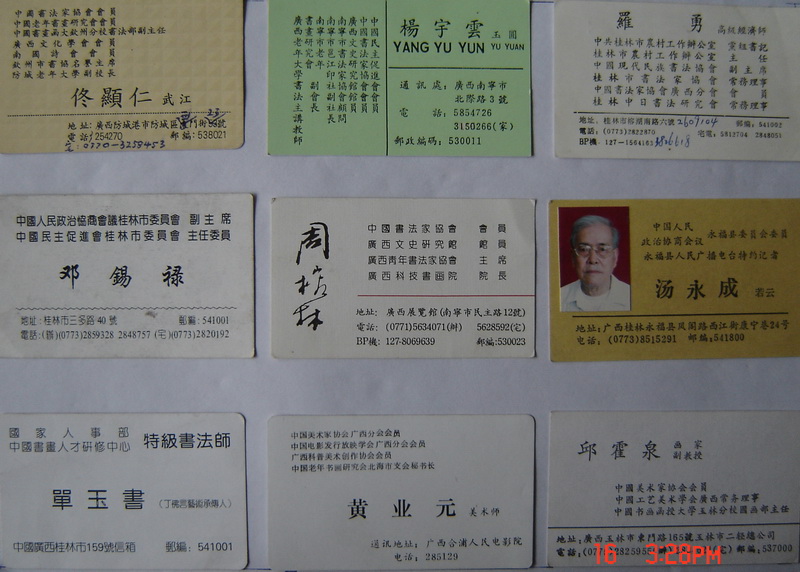 中國書法家協會會員
中國老年書畫研究會會員
中國書畫函大欽州分校書法部副主任
廣西文化學會會員
南國詩會會員
欽州市書協名譽主席
防城老年大學副校長
佟顯仁 武江
地址:廣西防城港市防城區
電話:254270 郵編:538021
宅:0770-3258453
楊宇雲 玉園
YANG YU YUN YU YUAN
中國民主促進會會員
中國書法家協會會員
通訊處:廣西南寧市
北際路3號
電話:5854726
3150266(家)
郵政編碼:530011
羅勇 高級經濟師
中共桂林市農村工作辦公室 黨組書記
桂林市農村工作辦公室 主任
中國現代民族書法協會 副主席
桂林市書法家協會 常務理事
中國書法家協會廣西分會 會員
桂林中日書法研究會 常務理事
地址:桂林市榕湖南路六號 2607104 郵編:541002
電話:(0773)2822870 宅電:5812704 2848051
BP機:127-1564163
中國人民政治協商會議桂林市委員會 副主席
中國民主促進會桂林市委員會 主任委員
邓錫禄
地址:桂林市三多路40號 郵編:541001
電話:(辦)(0773)2859328 2848757 (宅)(0773)2820192
中國書法家協會 會員
廣西文史研究館 館員
廣西青年書法家協會 主席
廣西科技書畫院 院長
周
林
地址: 廣西展覽館(南寧市民主路12號)
電話: (0771)5634071(辦) 5628592(宅)
BP機: 127-8069639 郵編:530023
中国人民
政治协商会议 永福县委员会委员
永福县人民广播电台特约记者
汤永成 若云
地址:广西桂林永福县凤阁路西江街康宁巷24号
电话:(0773)8515291 邮编:541800
國家人事部
中國書畫人才研修中心 特級書法師
單玉書 (丁佛言藝術承傳人)
中國廣西桂林市159號信箱 郵編:541001
中国美术家协会广西分会会员
中国电影发行放映学会广西分会会员
广西科普美术创作协会会员
中国老年书画研究会北海市支会秘书长
黄业元 美术师
通讯地址:广西合浦人民电影院
电话:285129
邱霍泉 画家
副教授
中國美术家協会会員
中国工艺美术学会廣西常务理事
中国书画函授大学玉林分校国画部主任
地址:廣西玉林市東門路165號玉林市二轻總公司
電話:(0775)282595 郵编:537000
16 3:28PM